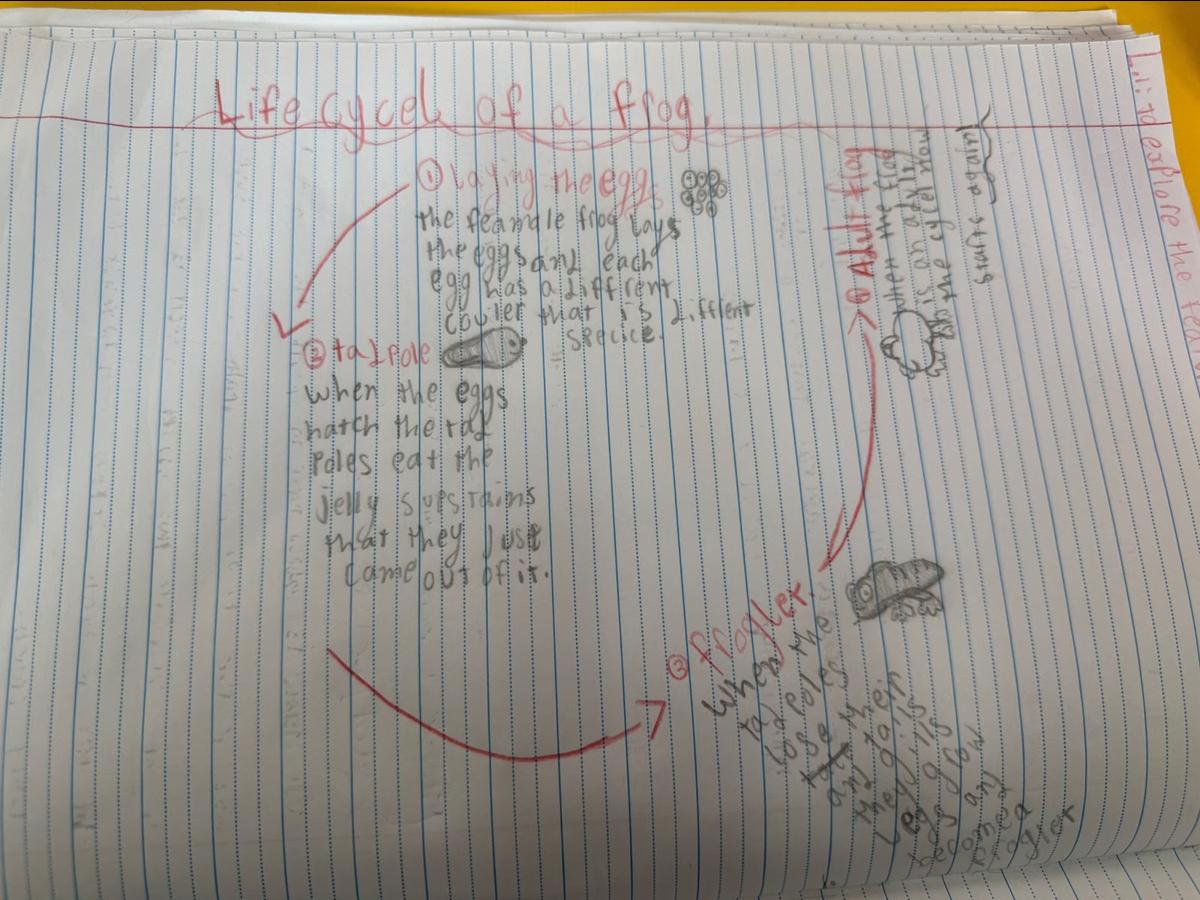 Life cycel of a frog.
L.i: to explore the
① laying the eggs
the feamale frog lays
the eggs and each
egg has a diffrent
couler that is diffrent
specice.
② tadpole
when the eggs
hatch the tad
poles eat the
jelly
that they just
came out of it.
③ frogler.
when the
tad poles
lose
and
they gain
leg gills
legs grow
and
becomes a
frogler
④ Adult frog
when the frog
is an adult
the cycel now
starts again!